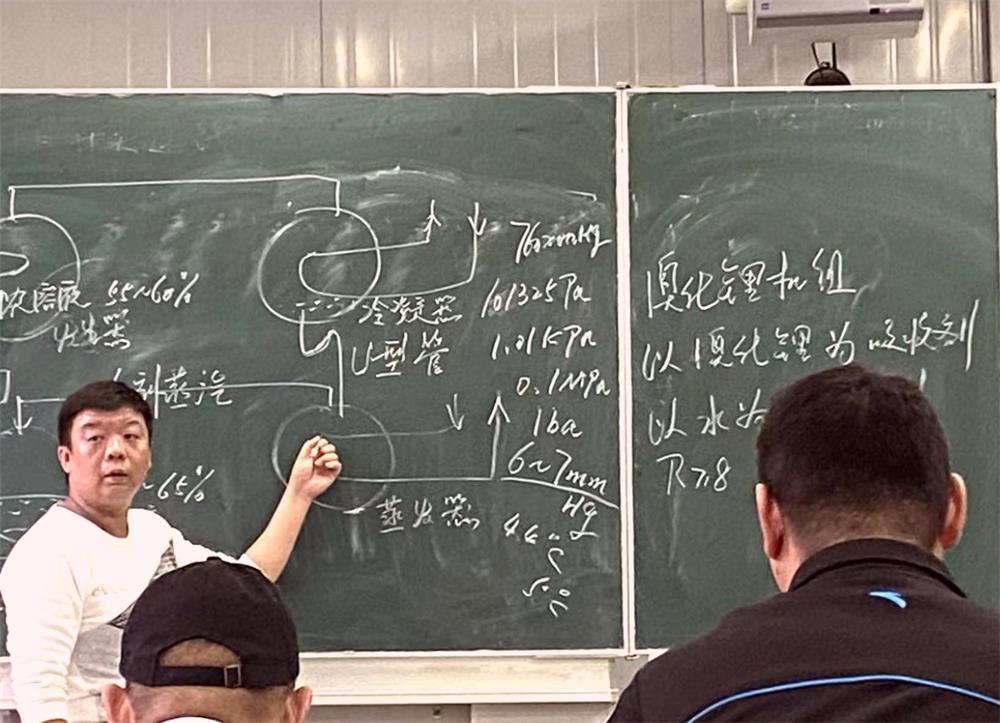 浓溶液 55~60%
发生器
冷凝器
U型管
剂蒸汽
~65%
蒸发器
760mmHg
101325Pa
1.01KPa
0.1MPa
1ba
6~7mm
Hg
4℃
5℃
溴化锂机组
以溴化锂为吸收剂
以水为
R≥8